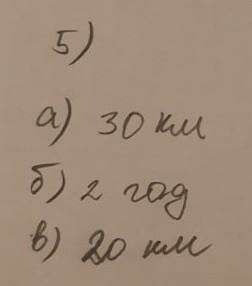 5)
а) 30 км
б) 2 год
в) 20 км